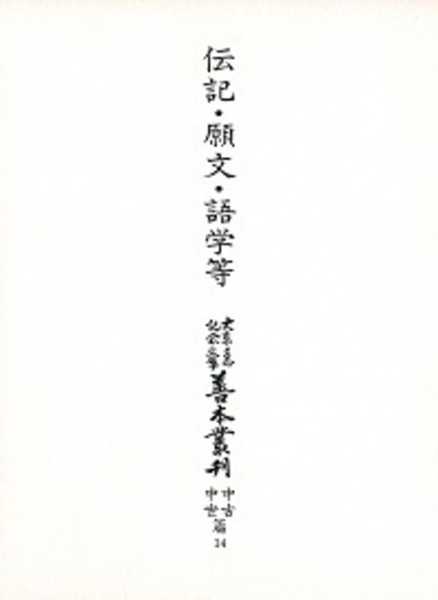 伝記・願文・語学等
大東急
記念文庫
善本叢刊
中古
中世
篇
14